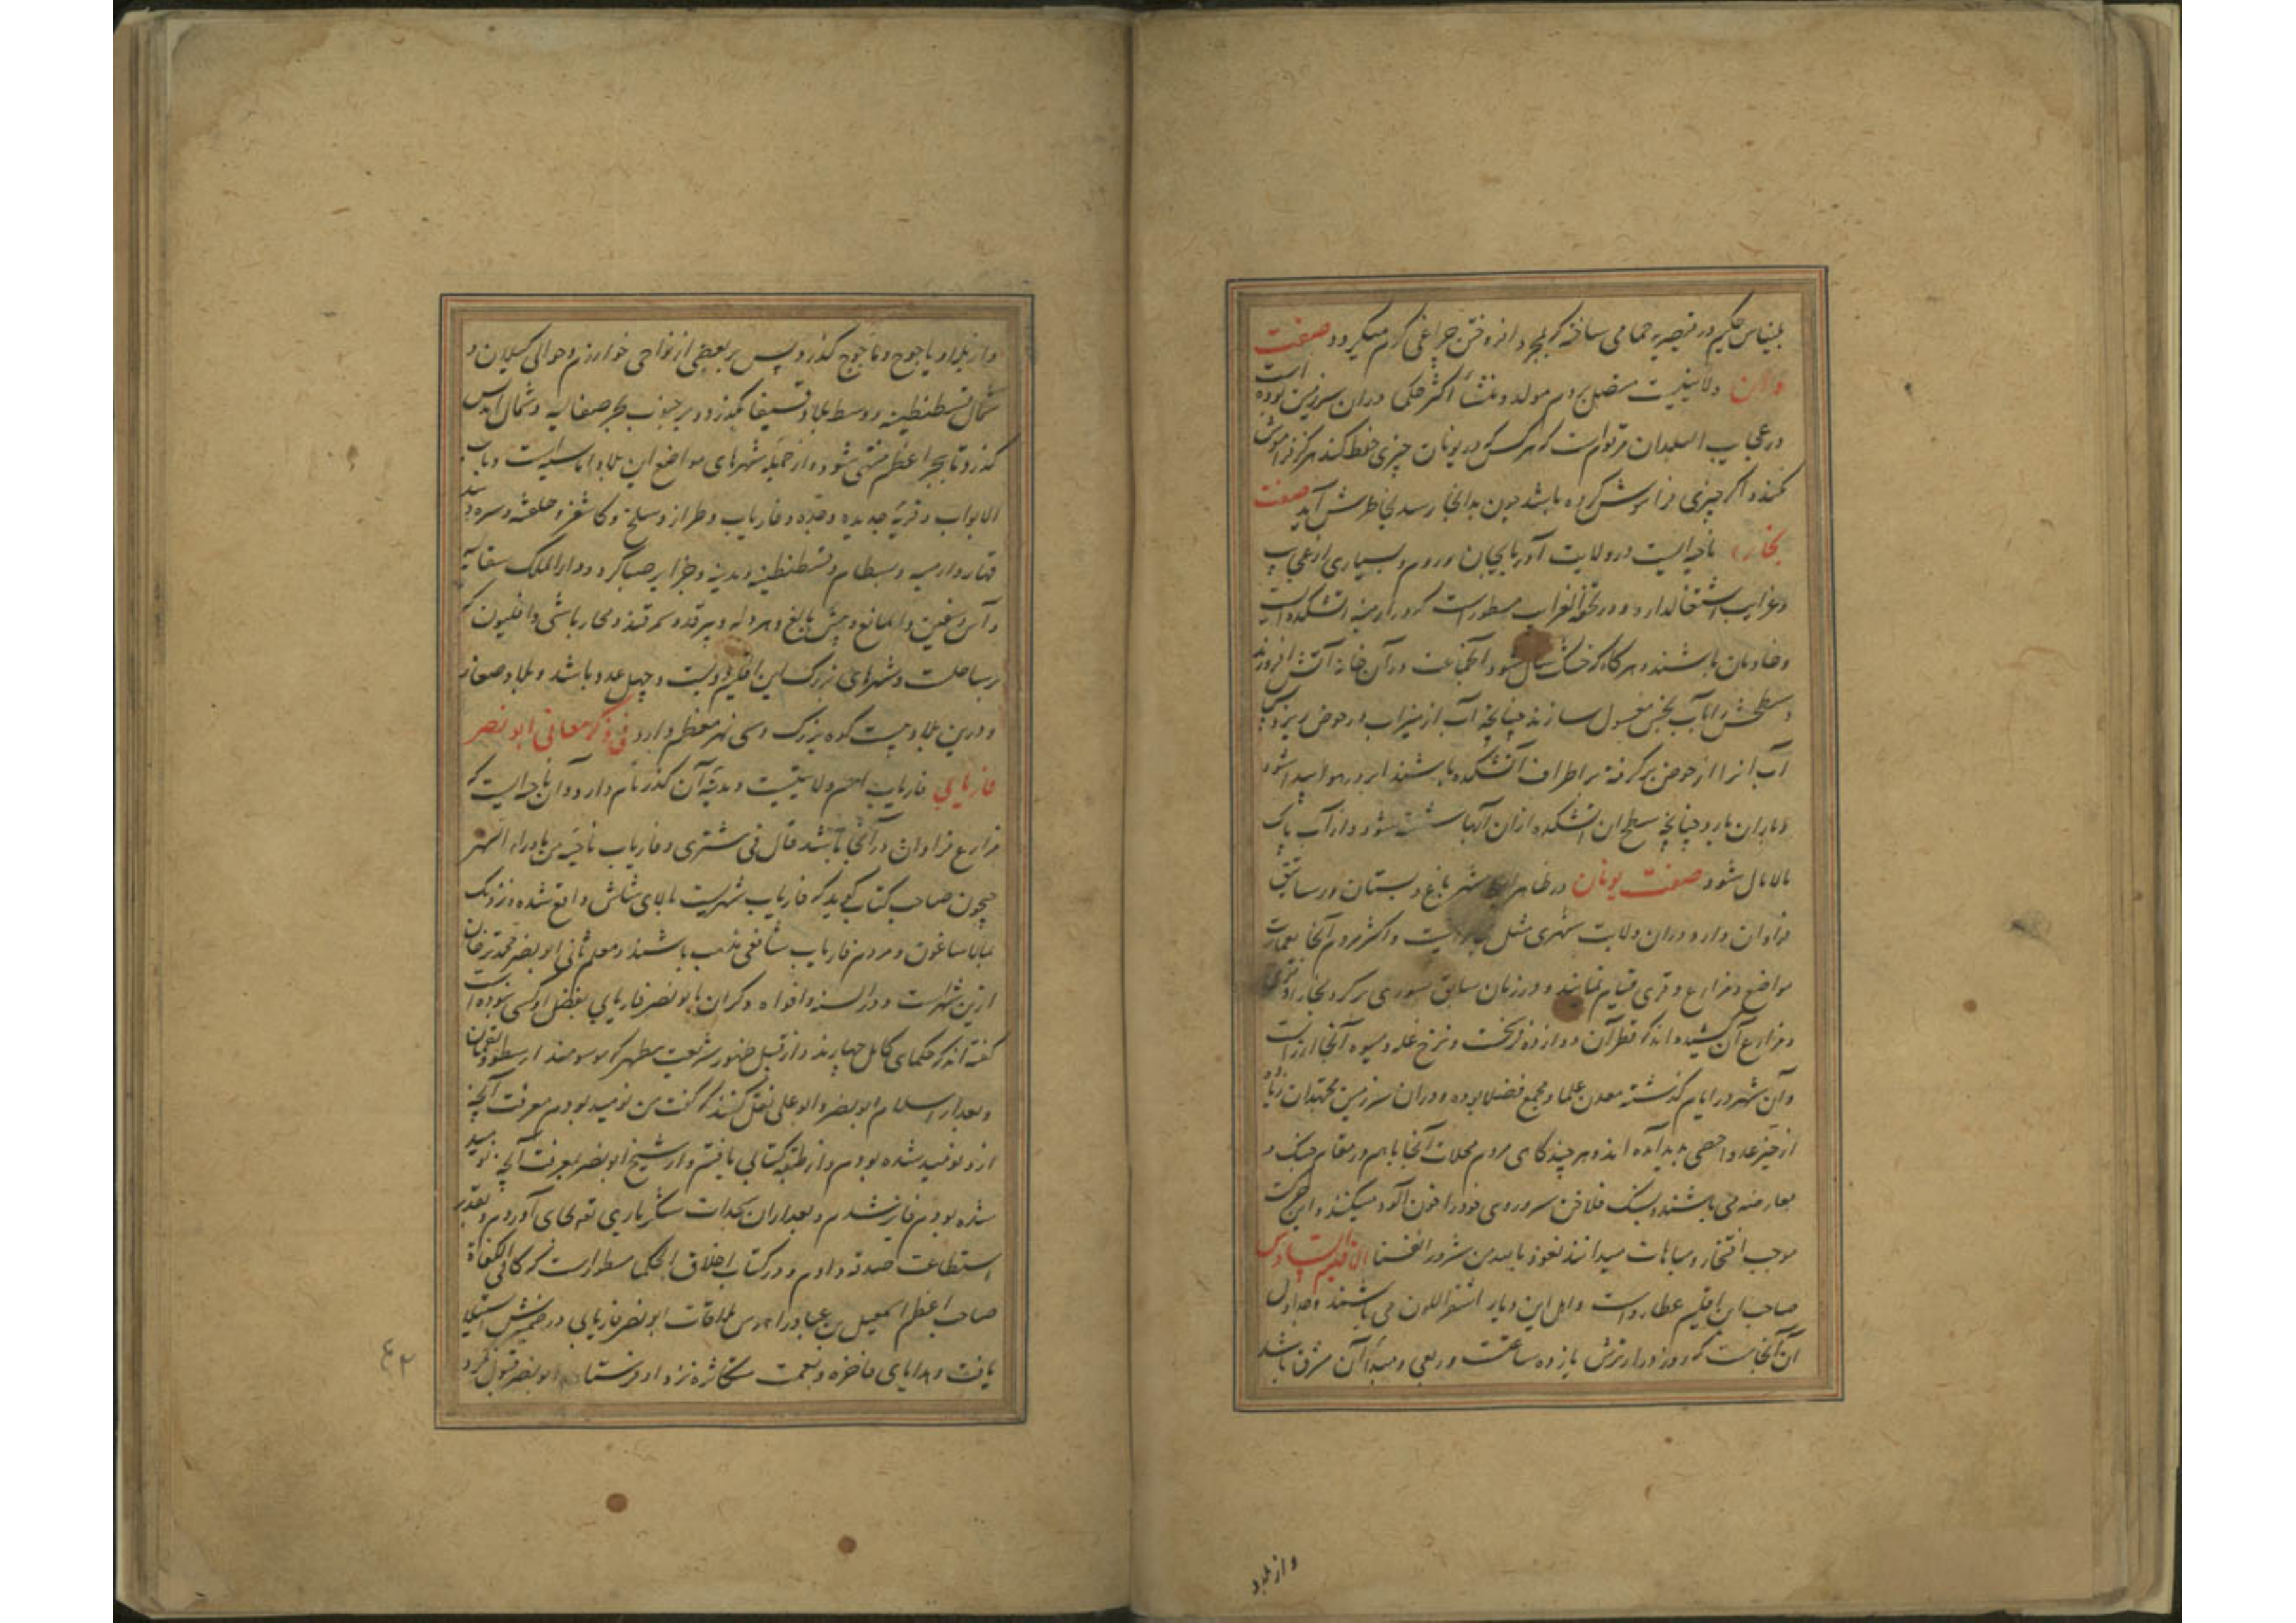 بلیناس حکیم در قیصریه حمامی ساخته که بمجرد افروختن چراغی گرم میگردد صفت
ولایتیست متصل بروم مولد و منشأ اکثر حکما در آن سرزمین بوده است
در عجایب البلدان مرقوم است که هرکس که در یونان چیزی حفظ کند هرگز فراموش
نکند و اگر چیزی فراموش کرده باشد چون بدانجا رسد بخاطرش آید صفت
ناحیه ایست در ولایت آذربایجان و روم و بسیاری از عجایب
و غرایب اشتغال دارد و در تحفة الغرایب مسطور است که در ارمنیه آتشکده ایست
و خادمان باشند و هرگاه که خشک سال شود آن جماعت در آن خانه آتش افروزند
و سطحش را بآب نجس مغسول سازند چنانچه آب از میزاب در حوض ریزد پس
آب آنرا از حوض برگرفته بر اطراف آتشکده باشند ابر در هوا پیدا شود
و باران بارد چنانچه سطح آن آتشکده از آن آبها شسته شود و از آب پاک
مالامال شود صفت یونان در ظاهر این شهر باغ و بستان و رساتیق
فراوان دارد و در آن ولایت شهری مثل نیست و اکثر مردم آنجا بعمارت
مواضع و مزارع و قری قیام نمایند و در زمان سابق سوری بر گرد بخارا و قری
و مزارع آن کشیده اند که قطر آن دوازده فرسخست و نرخ غله و میوه آنجا ارزانست
و آن شهر در ایام گذشته معدن علما و مجمع فضلا بوده و در آن سرزمین مجتهدان زیاده
از حیز عد و احصی پدید آمده اند و هر چند گاهی مردم محلات آنجا با هم در مقام جنگ و
معارضه می باشند و بسنگ فلاخن سر و روی خود را خون آلود میکنند و این حرکت
موجب افتخار و مباهات میدانند نعوذ بالله من شرور انفسنا الاقلیم السادس
صاحب این اقلیم عطارد است و اهل این دیار اشقر اللون می باشند و مدار اول
آن آنجاست که روز درازترش پانزده ساعت و ربعی و مبدأ آن مشرق باشد
و از بلاد
و از بلاد یاجوج و ماجوج گذرد پس بر بعضی از نواحی خوارزم و حوالی گیلان و
شمال قسطنطنیه و وسط بلاد بگذرد و بر جنوب بحر صقالیه و شمال اندلس
گذرد تا ببحر اعظم منتهی شود و از جمله شهرهای مواضع این بلاد اماسیه است و باب
الابواب و قریه جدیده و جده و فاریاب و طراز و سلخ و کاشغر و
و ارمنیه و بسطام و قسطنطنیه و مدینه و جزایر و دار الملک سقالیه
بر ساحلست و شهرهای بزرگ این اقلیم دویست و چهل عدد باشد و بلاد صغار
و درین بلاد بیست کوه بزرگ و سی نهر معظم دارد فی ذکر معانی ابو نصر
فاریابی فاریاب اسم ولایتیست و مدینه آن کدر نام دارد و آن ناحیه ایست که
مزارع فراوان در آنجا باشد قال فی مشتری و فاریاب ناحیه من ماوراء النهر
جیحون صاحب کتاب گوید که فاریاب شهریست بالای شاش واقع شده و نزدیک
ببلاساغون و مردم فاریاب شافعی مذهب باشند و معلم ثانی ابو نصر محمد ترخان
ازین شهرست و در السنه و افواه دکران بابو نصر فاریابی بفضل او کسی نبوده است
گفته اند که حکمای کامل چهارند و از قبل ظهور شریعت مطهر که موسومند ارسطو و لقمان
و بعد از اسلام ابو نصر و ابو علی نقل کنند که گفت من نومید بودم معرفت آنچه
ازو نومید شده بودم و از طبقه کتابی یافتم و از شیخ ابو نصر بمعرفت آنچه نومید
شده بودم فایز شدم و بعد از آن سجدات شکر باری تعالی بجای آوردم و بقدر
استطاعت صدقه دادم و در کتاب اخلاق الحکما مسطور است که کافی الکفاة
صاحب اعظم اسمعیل بن عباد را هوس ملاقات ابو نصر فاریابی در ضمیرش استیلا
یافت و هدایای فاخره و نعمت متکاثره نزد او فرستاد ابو نصر قبول نکرد
٤٢